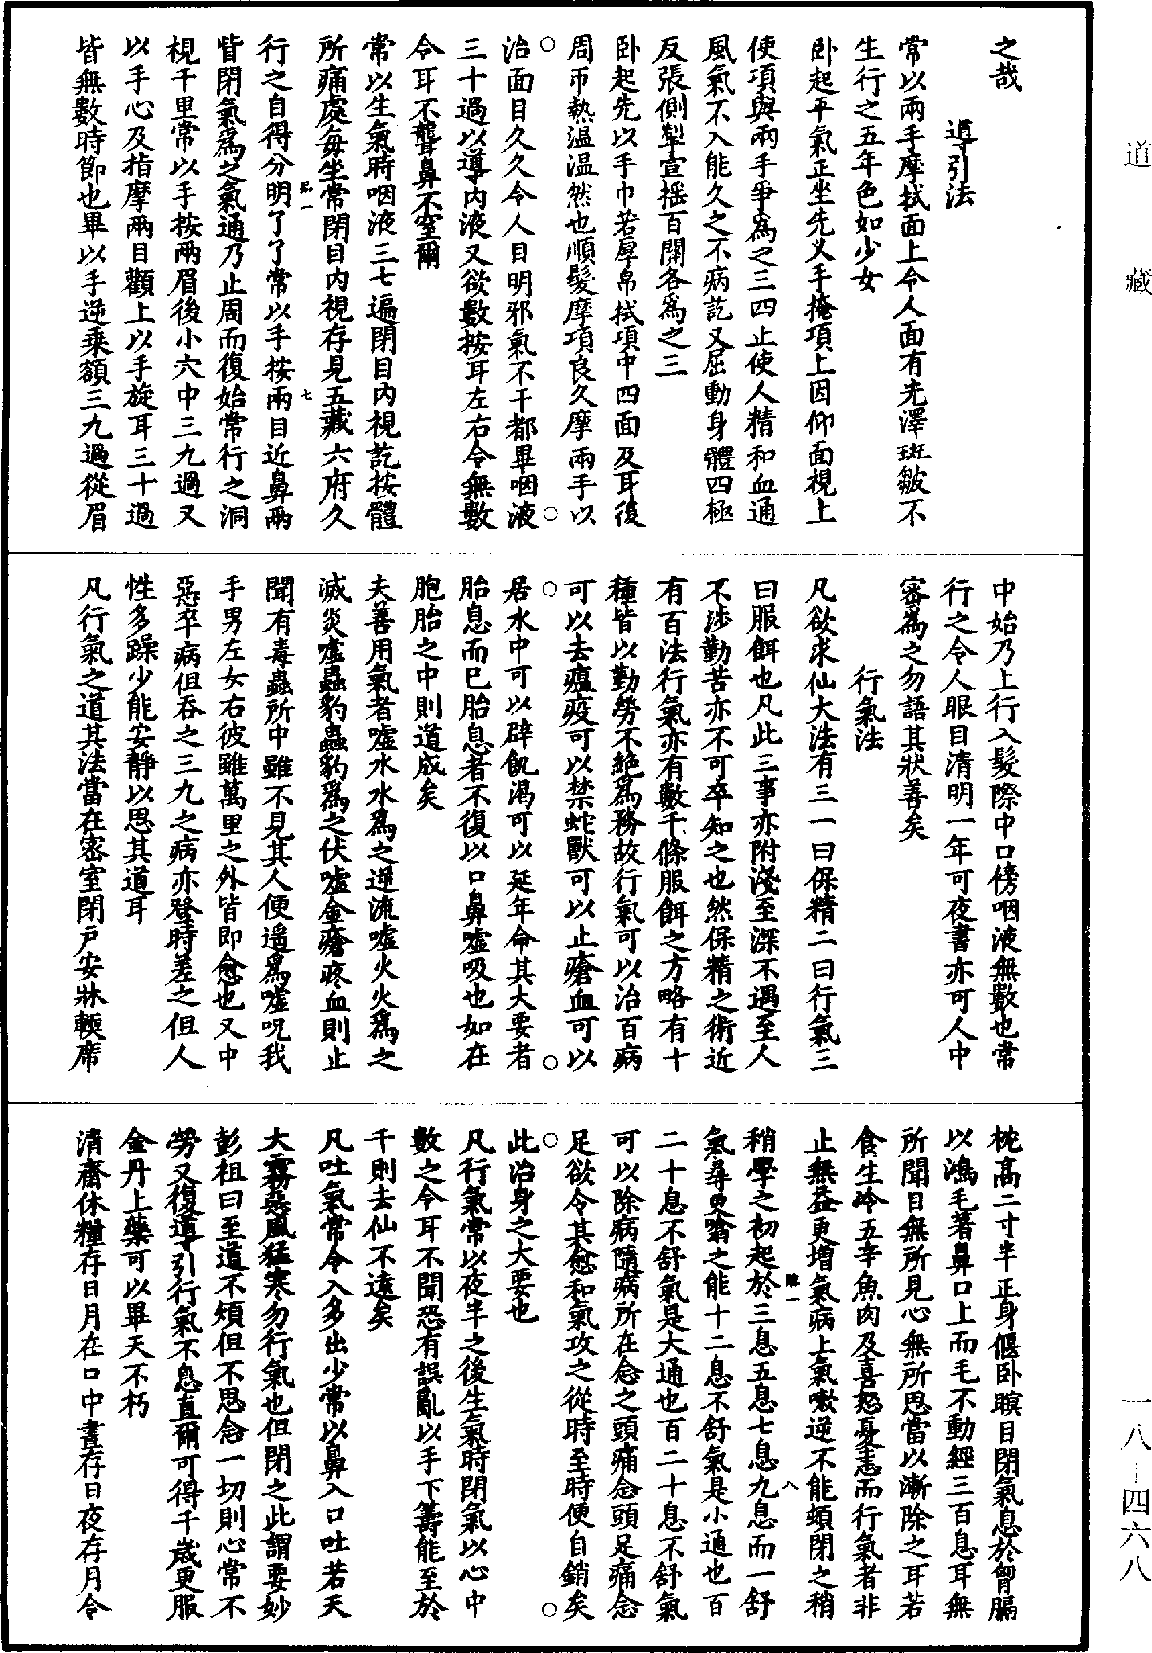 道藏
一八—四六八
之哉
導引法
常以兩手摩拭面上令人面有光澤斑皺不
生行之五年色如少女
卧起平氣正坐先叉手掩項上因仰面視上
使項與兩手爭為之三四止使人精和血通
風氣不入能久之不病訖又屈動身體四極
反張側掣宣摇百關各為之三
卧起先以手巾若厚帛拭項中四面及耳後
周帀熱温温然也順髮摩項良久摩兩手以
治面目久久令人目明邪氣不干都畢咽液
三十過以導内液又欲數按耳左右令無數
令耳不聾鼻不窒爾
常以生氣時咽液三七遍閉目内視訖按體
所痛處每坐常閉目内視存見五藏六府久
行之自得分明了了常以手按兩目近鼻兩
眥閉氣為之氣通乃止周而復始常行之洞
視千里常以手按兩眉後小穴中三九過又
以手心及指摩兩目顴上以手旋耳三十過
皆無數時節也畢以手逆乘額三九過從眉
七
中始乃上行入髮際中口傍咽液無數也常
行之令人眼目清明一年可夜書亦可人中
密為之勿語其狀善矣
行氣法
凡欲求仙大法有三一曰保精二曰行氣三
曰服餌也凡此三事亦附淺至深不遇至人
不涉勤苦亦不可卒知之也然保精之術近
有百法行氣亦有數千條服餌之方略有十
種皆以勤勞不絶為務故行氣可以治百病
可以去瘟疫可以禁蛇獸可以止瘡血可以
居水中可以辟飢渴可以延年命其大要者
胎息而已胎息者不復以口鼻噓吸也如在
胞胎之中則道成矣
夫善用氣者噓水水為之逆流噓火火為之
滅炎噓蟲豹蟲豹為之伏噓金瘡疼血則止
聞有毒蟲所中雖不見其人便遥為噓呪我
手男左女右彼雖萬里之外皆即愈也又中
惡卒病但吞之三九之病亦登時差之但人
性多躁少能安靜以思其道耳
凡行氣之道其法當在密室閉户安牀輭席
枕高二寸半正身偃卧瞑目閉氣息於胷膈
以鴻毛著鼻口上而毛不動經三百息耳無
所聞目無所見心無所思當以漸除之耳若
食生冷五辛魚肉及喜怒憂恚而行氣者非
止無益更增氣病上氣嗽逆不能頓閉之稍
稍學之初起於三息五息七息九息而一舒
氣尋更噏之能十二息不舒氣是小通也百
二十息不舒氣是大通也百二十息不舒氣
可以除病隨病所在念之頭痛念頭足痛念
足欲令其愈和氣攻之從時至時便自銷矣
此治身之大要也
凡行氣常以夜半之後生氣時閉氣以心中
數之令耳不聞恐有誤亂以手下籌能至於
千則去仙不遠矣
凡吐氣常令入多出少常以鼻入口吐若天
大霧惡風猛寒勿行氣也但閉之此謂要妙
彭祖曰至道不煩但不思念一切則心常不
勞又復導引行氣不息直爾可得千歲更服
金丹上藥可以畢天不朽
清齋休糧存日月在口中晝存日夜存月令
八